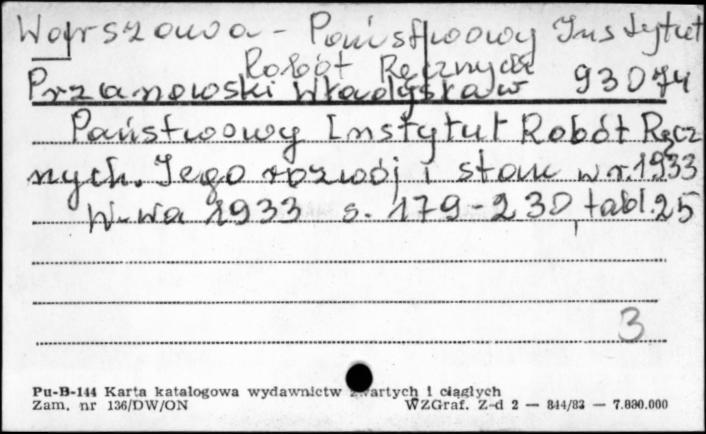 Warszawa - Państwowy Instytut
Robót Ręcznych
Przanowski Władysław 93074
Państwowy Instytut Robót Ręcz
nych. Jego rozwój i stan w r. 1933
W-wa 1933 s. 179-230, tabl. 25
3
Pu-B-144 Karta katalogowa wydawnictw zwartych i ciągłych
Zam. nr 136/DW/ON WZGraf. Z-d 2 — 844/83 — 7.830.000